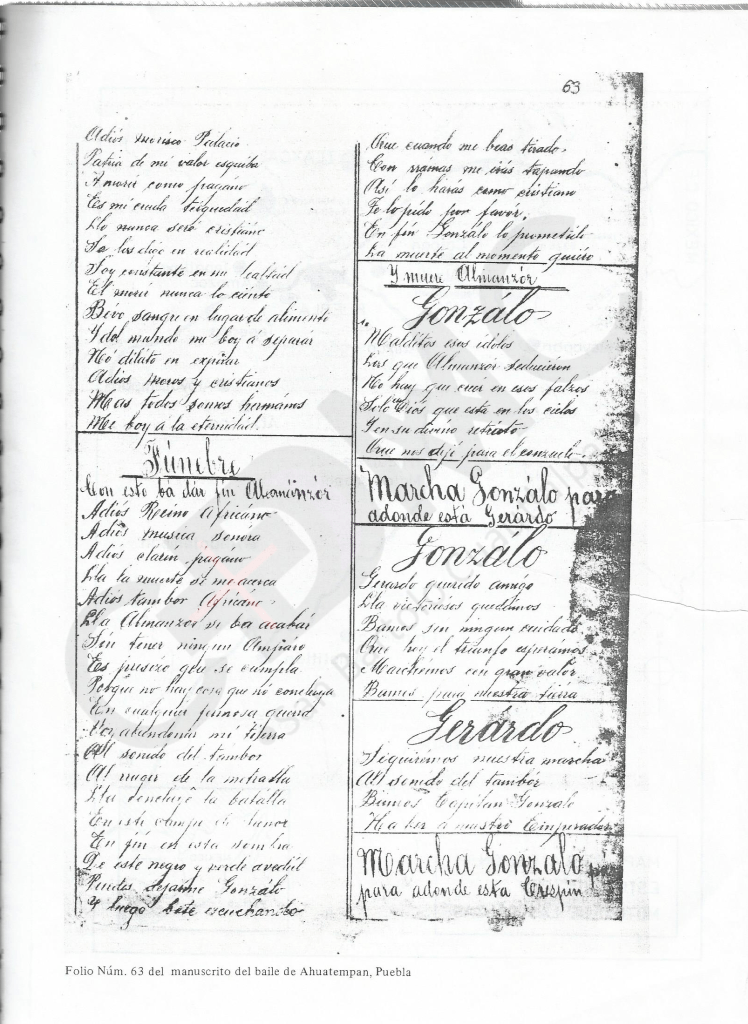 63
Adiós morisco Palacio
Patria de mi valor esquiba
A morir como pagano
Es mi cruda terquedad
Lla nunca seré cristiano
Se los digo en realidad
Soy constante en mi lealtad
El morir nunca lo ciento
Bevo sangre en lugar de alimento
Y del mundo me boy a separar
No dilato en expirar
Adios moros y cristianos
Mas todos somos hermános
Me boy a la eternidad.
Fúnebre
Con esto ba dár fin Almánzór
Adiós Reino Africáno
Adiós musica sonora
Adiós clarín pagáno
Lla la muerte se me acerca
Adiós tambor Africáno
Lla Almanzor se ba acabár
Sin tener ningun Ampáro
Es presizo que se cumpla
Porque no hay cosa que no concluya
En cualquier penosa guerra
Voy abandonar mi tierra
Al sonido del tambor
Al rugir de la metralla
Lla concluyó la batalla
En este campo de honor
En fin en esta sombra
De este negro y verde
Puedes dejarme Gonzálo
Y luego bete escuchando
Que cuando me beas tirado,
Con rramas me irás tapando
Así lo harás como cristiano
Te lo pido por favor,
En fin Gonzálo lo prometido
La muerte al momento quiero
Y muere Almanzór
Gonzálo
Malditos esos idolos
Los que Almanzor sedugeron
No hay que creer en esos falzos
Solo Diós que está en los cielos
Y en su divino retráto
Que nos dejó para el conzuelo
Marcha Gonzálo para
adonde está Gerárdo
Gonzálo
Gerardo querido amigo
Lla victoriosos quedámos
Bamos sin ningun cuidado
Que hoy el triunfo esperámos
Marchémos con gran valor
Bamos para nuestra tierra
Gerárdo
Seguirémos nuestra marcha
Al sonido del tambór
Bamos Capitan Gonzalo
Ha ber a nuestro Emperador
Marcha Gonzalo
para adonde esta Crespín
Folio Núm. 63 del manuscrito del baile de Ahuatempan, Puebla